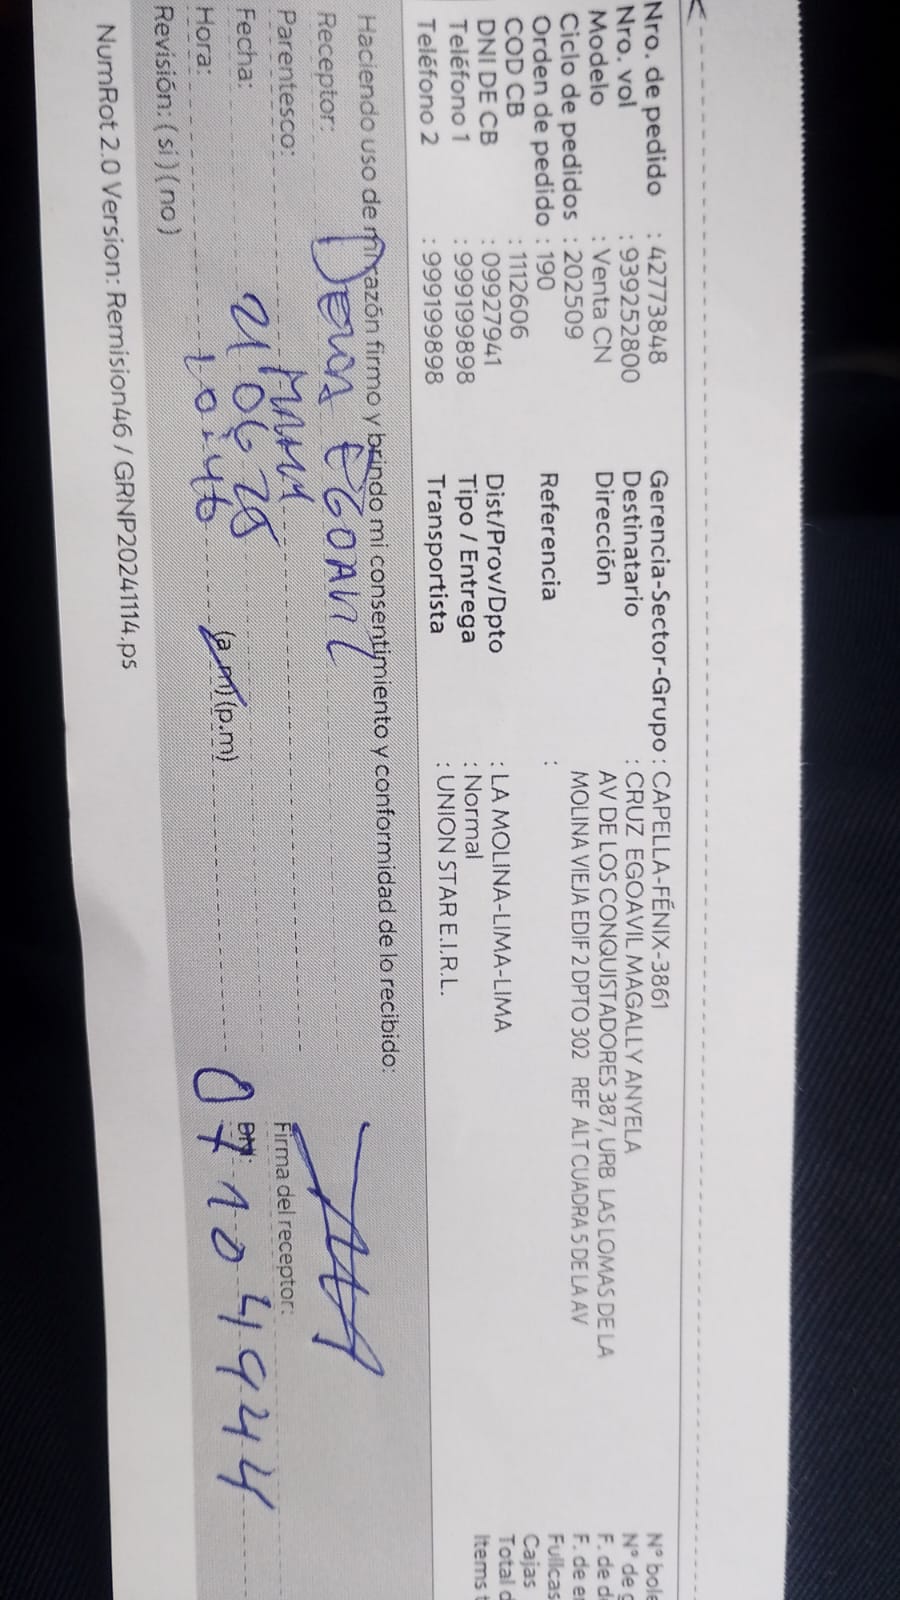 Nro. de pedido : 42773848
Nro. vol : 939252800
Modelo : Venta CN
Ciclo de pedidos : 202509
Orden de pedido : 190
COD CB : 1112606
DNI DE CB : 09927941
Teléfono 1 : 999199898
Teléfono 2 : 999199898
Gerencia-Sector-Grupo : CAPELLA-FÉNIX-3861
Destinatario : CRUZ EGOAVIL MAGALLY ANYELA
Dirección AV DE LOS CONQUISTADORES 387, URB LAS LOMAS DE LA
MOLINA VIEJA EDIF 2 DPTO 302 REF ALT CUADRA 5 DE LA AV
Referencia :
Dist/Prov/Dpto : LA MOLINA-LIMA-LIMA
Tipo / Entrega : Normal
Transportista : UNION STAR E.I.R.L.
Nº bole
Nº de g
F. de d
F. de e
Fullcas
Cajas
Total d
Items t
Haciendo uso de mi razón firmo y brindo mi consentimiento y conformidad de lo recibido:
Receptor: EGOAVIL
Parentesco: MAMA
Fecha: 21 06 25
Hora: 10:46 (a.m) (p.m)
Revisión: ( si ) ( no )
Firma del receptor:
DNI: 07104944
NumRot 2.0 Version: Remision46 / GRNP20241114.ps